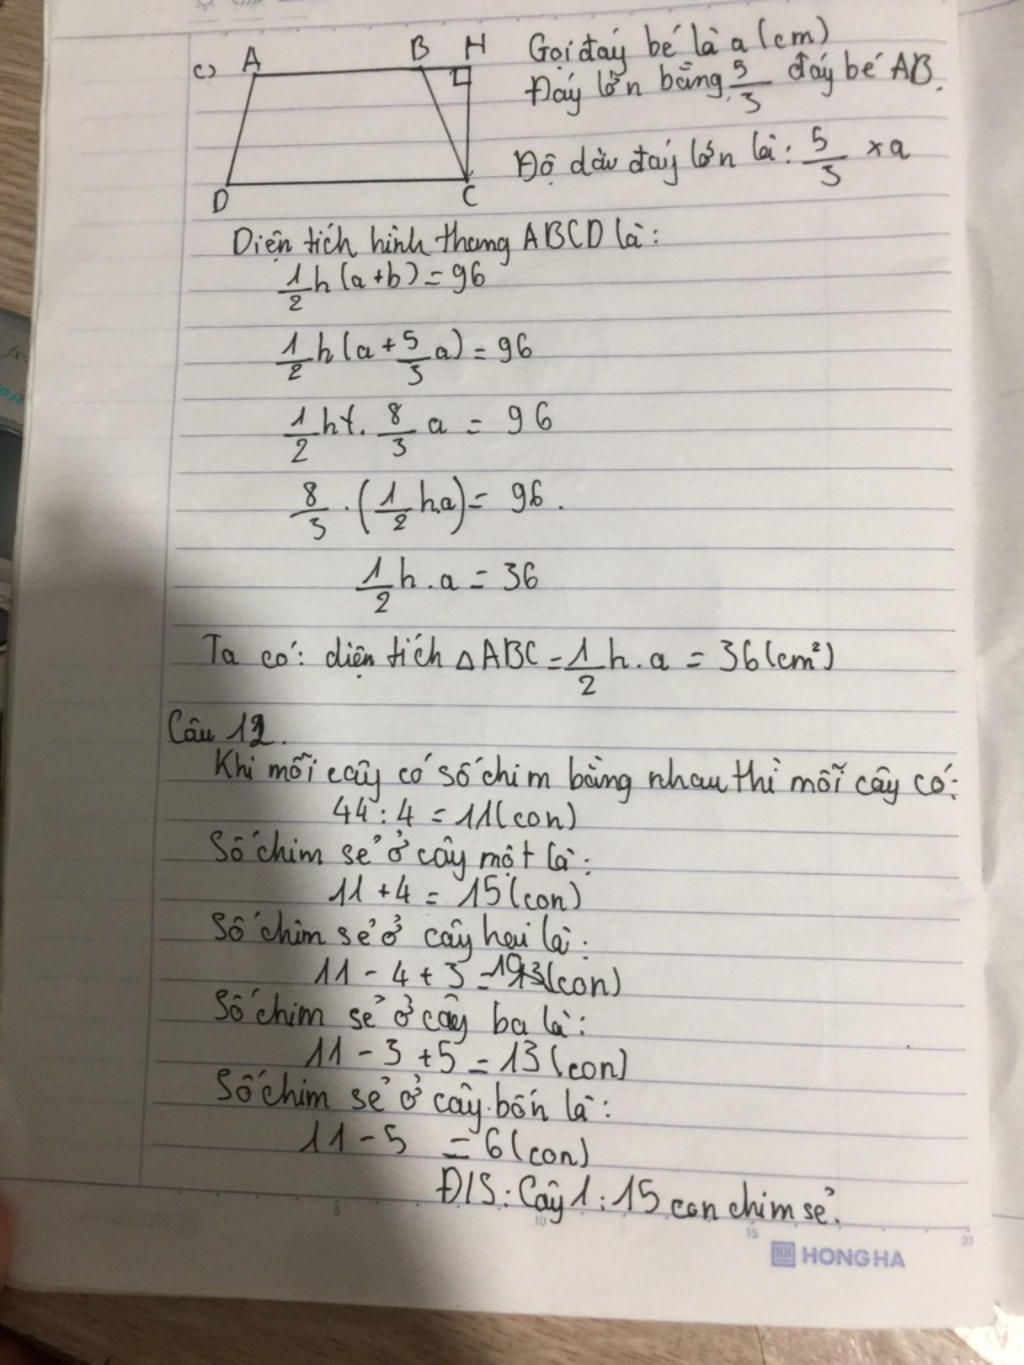 c) A B H Gọi đáy bé là a (cm)
Đáy lớn bằng 5/3 đáy bé AB.
Độ dài đáy lớn là: 5/3 × a
D C
Diện tích hình thang ABCD là:
1/2 h (a + b) = 96
1/2 h (a + 5/3 a) = 96
1/2 h . 8/3 a = 96
8/3 . (1/2 h.a) = 96.
1/2 h . a = 36
Ta có: diện tích △ABC = 1/2 h . a = 36 (cm²)
Câu 12.
Khi mỗi cây có số chim bằng nhau thì mỗi cây có:
44 : 4 = 11 (con)
Số chim sẻ ở cây một là:
11 + 4 = 15 (con)
Số chim sẻ ở cây hai là:
11 - 4 + 3 = (con)
Số chim sẻ ở cây ba là:
11 - 3 + 5 = 13 (con)
Số chim sẻ ở cây bốn là:
11 - 5 = 6 (con)
Đ/S: Cây 1: 15 con chim sẻ.
5 10 15 20
HONG HA